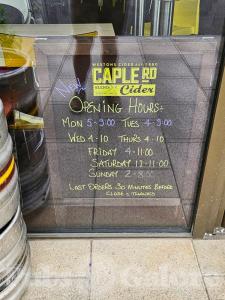 WESTONS CIDER EST 1880
CAPLE RD
Cider
OPENING HOURS:
MON 5-9:00 TUES 4-9:00
WED 4-10 THURS 4-10
FRIDAY 4-11:00
SATURDAY 12-11:00
SUNDAY 2-8:00
LAST ORDERS 30 MINUTES BEFORE
CLOSE